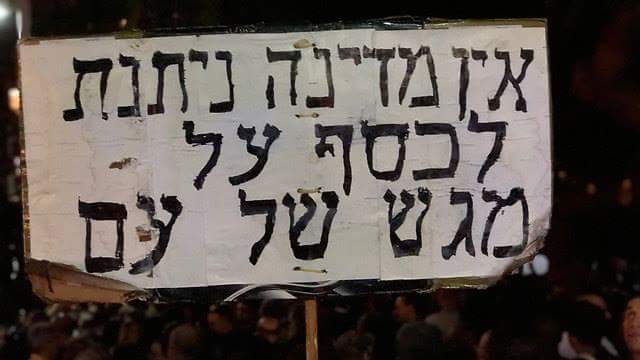 אין מדינה ניתנת
לכסף על
מגש של עם